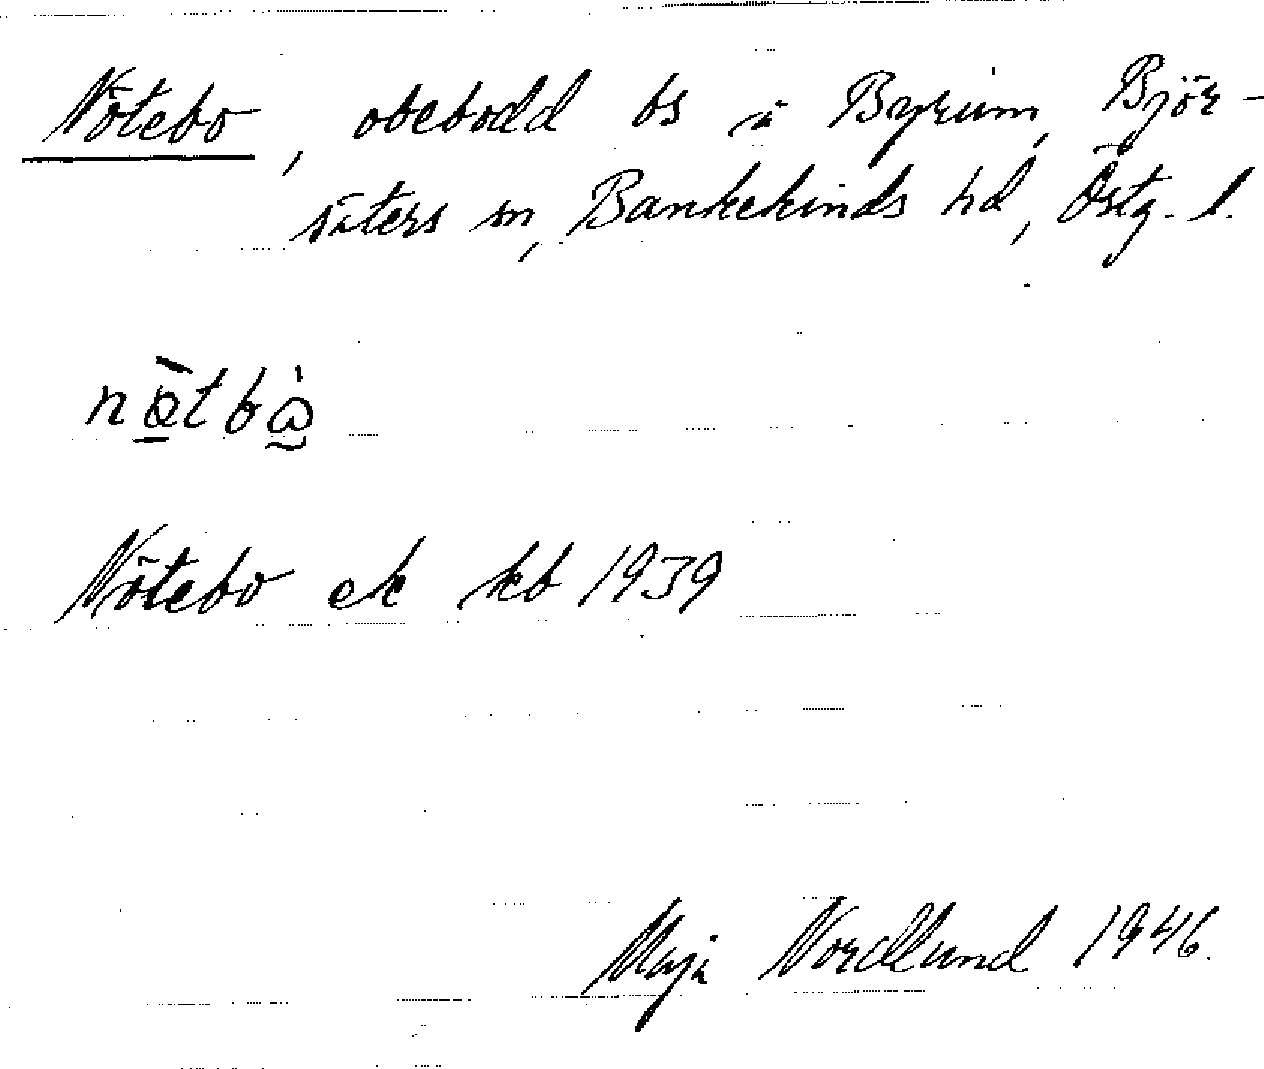 Nötebo, obebodd bs å Byrum, Björ-
säters sn, Bankekinds hd, Östg. l.
nø̀tbò
Nötebo ek kb 1939
Maja Nordlund 1946.